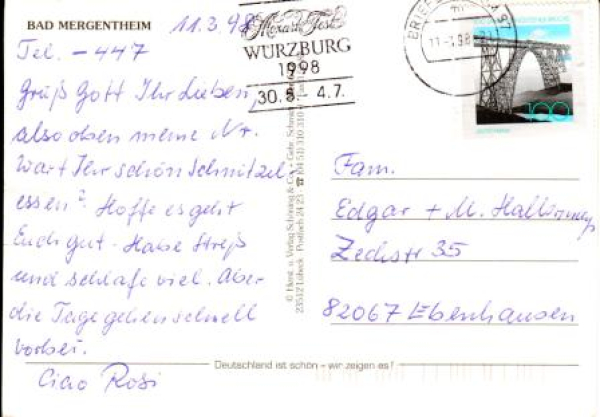 BAD MERGENTHEIM
11.3.98
Tel. - 447
Grüß Gott Ihr Lieben,
also oben meine Nr.
Wart Ihr schön Schnitzel
essen? Hoffe es geht
Euch gut. Habe Streß
und schlafe viel. Aber
die Tage gehen schnell
vorbei.
Ciao Rosi
Mozart Fest
WÜRZBURG
1998
30.5.- 4.7.
BRIEF
97
100
© Horst. u. Verlag Schöning & Co. + Gebr. Schmidt
23512 Lübeck · Postfach 24 23 · ☎ (04 51) 310 310
Fam.
Edgar + M.
Zechstr 35
82067 Ebenhausen
Deutschland ist schön – wir zeigen es!